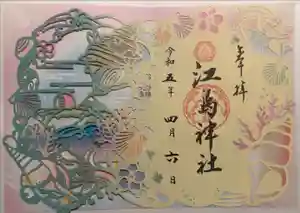 奉拝
江島神社
令和五年 四月 六日